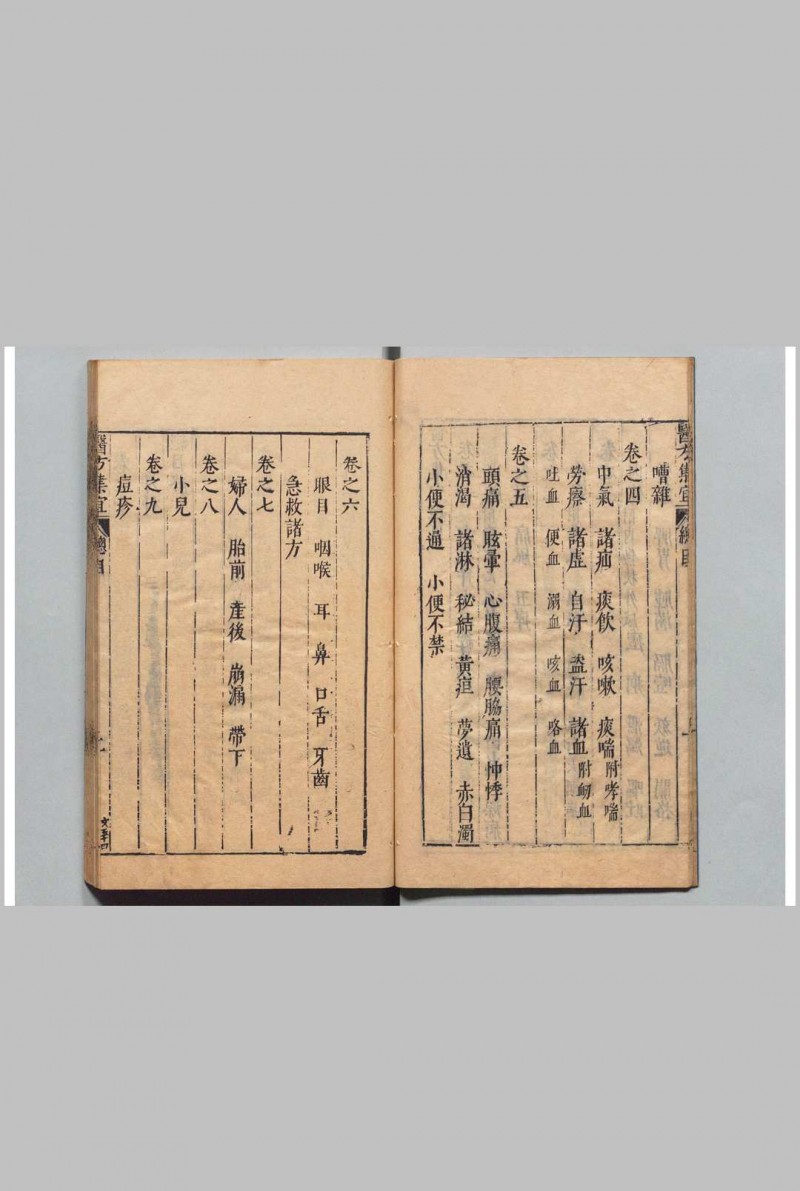 醫方集宜 總目
嘈雜
卷之四
中氣 諸疝 痰飲 咳嗽 痰喘 附哮喘
勞瘵 諸虛 自汗 盗汗 諸血 附衂血
吐血 便血 溺血 咳血 咯血
卷之五
頭痛 眩暈 心腹痛 腰脇痛 怔悸
消渴 諸淋 秘結 黃疸 夢遺 赤白濁
小便不通 小便不禁
卷之六
眼目 咽喉 耳 鼻 口舌 牙齒
急救諸方
卷之七
婦人 胎前 產後 崩漏 帶下
卷之八
小兒
卷之九
痘疹
醫方集宜 總目